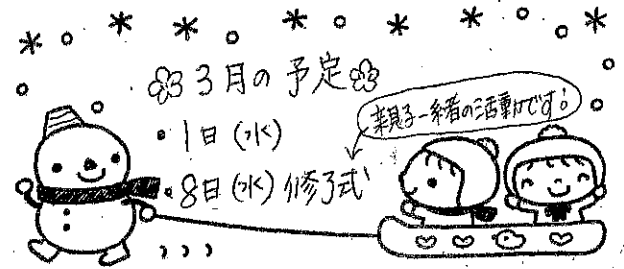 3月の予定
・1日(水)
・8日(水)修了式
親子一緒の活動です!